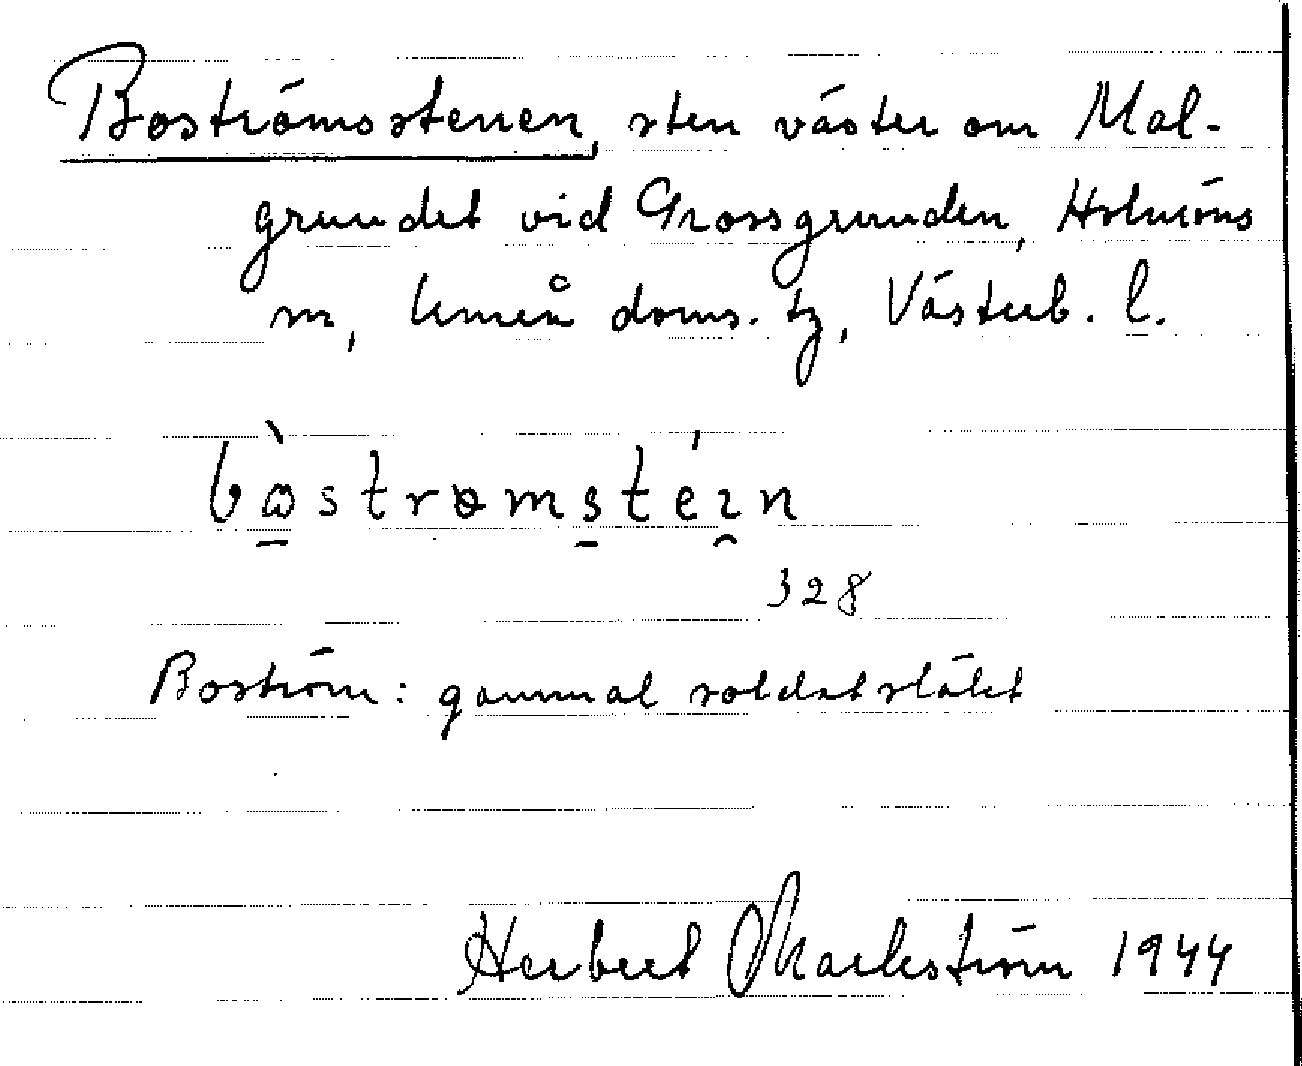 Boströmsstenen, sten väster om Mal-
grundet vid Grossgrunden, Holmöns
sn, Umeå doms. tg, Västerb. l.
bɷ̀strɵmstéɪn
328
Boström: gammal soldatsläkt
Herbert Markström 1944